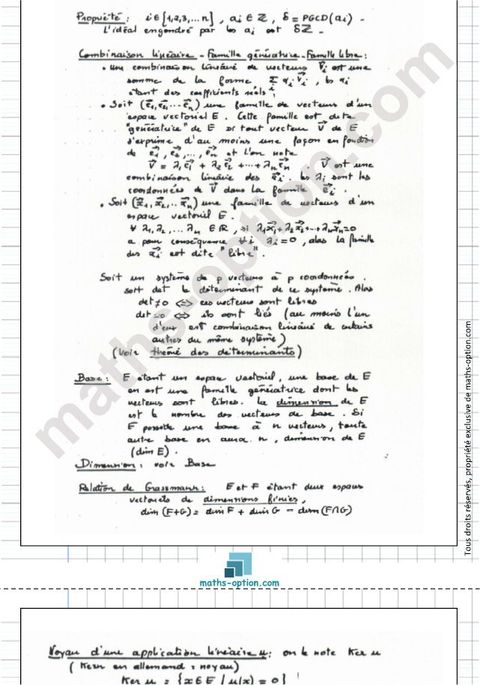 Propriété : i∈{1,2,3,...n} , ai ∈ ℤ, δ = PGCD(ai).
L'idéal engendré par les ai est δℤ.
Combinaison linéaire - Famille génératrice - Famille libre :
• Une combinaison linéaire de vecteurs V⃗i est une
somme de la forme Σ αi.V⃗i, les αi
étant des coefficients réels ;
• Soit (e⃗1, e⃗2, ... e⃗n) une famille de vecteurs d'un
espace vectoriel E. Cette famille est dite
"génératrice" de E si tout vecteur V⃗ de E
s'exprime d'au moins une façon en fonction
de e⃗1, e⃗2, ..., e⃗n et l'on note
V⃗ = λ1e⃗1 + λ2e⃗2 + ... + λne⃗n . V⃗ est une
combinaison linéaire des e⃗i. les λi sont les
coordonnées de V⃗ dans la famille e⃗i.
• Soit (x⃗1, x⃗2, ... x⃗n) une famille de vecteurs d'un
espace vectoriel E.
∀ λ1, λ2, ... λn ∈ ℝ, si λ1x⃗1 + λ2x⃗2 + ... + λnx⃗n = 0
a pour conséquence ∀ i λi = 0, alors la famille
des x⃗i est dite "libre".
Soit un système de p vecteurs à p coordonnées.
soit det le déterminant de ce système. Alors
det ≠ 0 ⟺ ces vecteurs sont libres
det = 0 ⟺ ils sont liés (au moins l'un
d'eux est combinaison linéaire de certains
autres du même système)
(Voir thème des déterminants)
Base : E étant un espace vectoriel, une base de E
en est une famille génératrice dont les
vecteurs sont libres. la dimension de E
est le nombre des vecteurs de base. Si
E possède une base à n vecteurs, toute
autre base en aura n, dimension de E
(dim E).
Dimension : voir Base
Relation de Grassmann : E et F étant deux espaces
vectoriels de dimensions finies,
dim (F+G) = dim F + dim G - dim (F∩G)
maths-option.com
Tous droits réservés, propriété exclusive de maths-option.com
maths-option.com
Noyau d'une application linéaire u : on le note Ker u
( Kern en allemand = noyau)
Ker u = {x∈E / u(x) = 0}